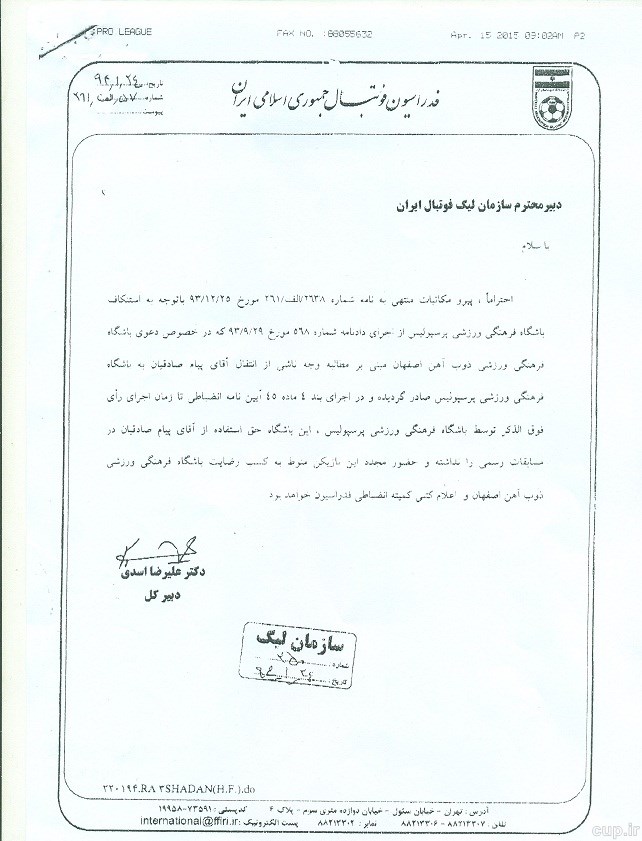 PRO LEAGUE FAX NO. :88055632 Apr. 15 2015 09:02AM P2
فدراسیون فوتبال جمهوری اسلامی ایران
تاریخ
شماره
پیوست
دبیر محترم سازمان لیگ فوتبال ایران
با سلام
احتراماً ، پیرو مکاتبات منتهی به نامه شماره ۲۶۳۸/الف/۲۶۱ مورخ ۹۳/۱۲/۲۵ باتوجه به استنکاف
باشگاه فرهنگی ورزشی پرسپولیس از اجرای دادنامه شماره ۵۶۸ مورخ ۹۳/۹/۲۹ که در خصوص دعوی باشگاه
فرهنگی ورزشی ذوب آهن اصفهان مبنی بر مطالبه وجه ناشی از انتقال آقای پیام صادقیان به باشگاه
فرهنگی ورزشی پرسپولیس صادر گردیده و در اجرای بند ۴ ماده ۴۵ آیین نامه انضباطی تا زمان اجرای رأی
فوق الذکر توسط باشگاه فرهنگی ورزشی پرسپولیس ، این باشگاه حق استفاده از آقای پیام صادقیان در
مسابقات رسمی را نداشته و حضور مجدد این بازیکن منوط به کسب رضایت باشگاه فرهنگی ورزشی
ذوب آهن اصفهان و اعلام کتبی کمیته انضباطی فدراسیون خواهد بود
دکتر علیرضا اسدی
دبیر کل
سازمان لیگ
شماره
تاریخ
۲۲۰۱۹۴.RA ۳SHADAN(H.F.).do
آدرس : تهران - خیابان سئول - خیابان دوازده متری سوم - پلاک ۴ کد پستی : ۷۳۵۹۱-۱۹۹۵۸
تلفن : ۸۸۲۱۳۳۰۷ - ۸۸۲۱۳۳۰۶ نمابر : ۸۸۲۱۳۳۰۲ پست الکترونیک : international@ffiri.ir
cup.ir